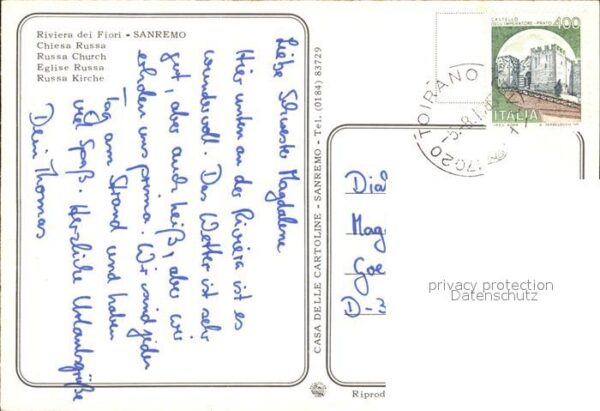 Riviera dei Fiori - SANREMO
Chiesa Russa
Russa Church
Eglise Russa
Russa Kirche
Liebe Schwester Magdalene
Hier unten an der Riviera ist es
wundervoll. Das Wetter ist sehr
gut, aber auch heiß, aber wir
erholen uns prima. Wir sind jeden
Tag am Strand und haben
viel Spaß. Herzliche Urlaubsgrüße
Dein Thomas
CASA DELLE CARTOLINE - SANREMO - Tel. (0184) 83729
CASTELLO
DELL'IMPERATORE - PRATO
400
ITALIA
17020 TOIRANO
Dia
Mag
Goe
privacy protection
Datenschutz
Riprod